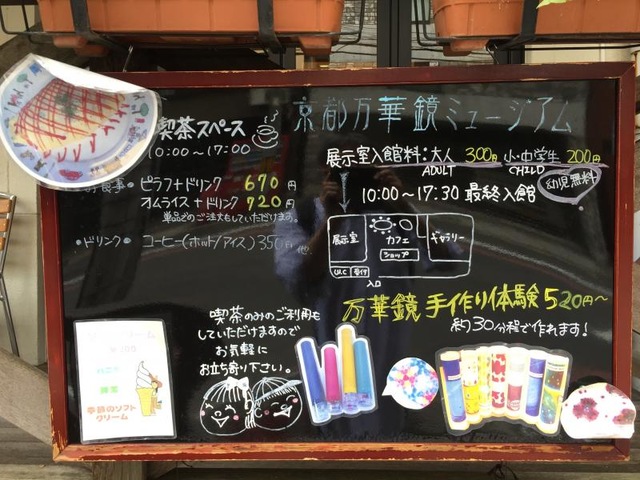 京都万華鏡ミュージアム
喫茶スペース
10:00〜17:00
お食事● ピラフ+ドリンク 670円
オムライス+ドリンク 720円
単品でのご注文もしていただけます。
●ドリンク● コーヒー(ホット/アイス) 350円 他
展示室入館料:大人 300円 小・中学生 200円
ADULT CHILD
幼児無料
10:00〜17:30 最終入館
展示室
カフェ
ショップ
ギャラリー
W.C 受付
入口
万華鏡 手作り体験 520円〜
約30分程で作れます!
喫茶のみのご利用も
していただけますので
お気軽に
お立ち寄り下さい。
季節のソフト
クリーム